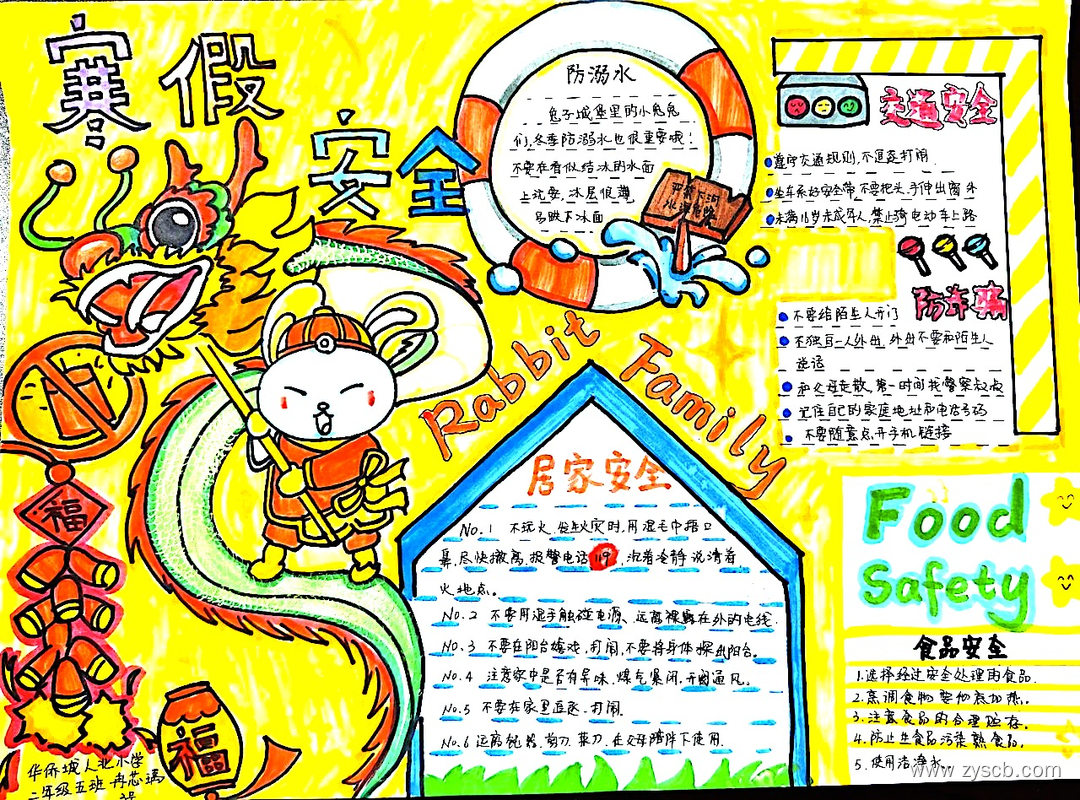 寒假
安全
防溺水
兔子城堡里的小兔兔
们,冬季防溺水也很重要哦!
不要在看似结冰的水面
上玩耍,冰层很薄
易跌下冰面
严禁下河
交通安全
遵守交通规则,不追逐打闹
坐车系好安全带,不要把头、手伸出窗外
未满16岁未成年人,禁止骑电动车上路
防诈骗
不要给陌生人开门
不独自一人外出,外出不要和陌生人
说话
和父母走散,第一时间找警察叔叔
记住自己的家庭地址和电话号码
不要随意点开手机链接
Rabbit Family
居家安全
No.1 不玩火,发生火灾时,用湿毛巾捂口
鼻,尽快撤离,报警电话119,沉着冷静说清着
火地点。
No.2 不要用湿手触碰电源、远离裸露在外的电线.
No.3 不要在阳台嬉戏,打闹,不要将身体探出阳台。
No.4 注意家中是否有异味、煤气集闭,开窗通风。
No.5 不要在家里追逐、打闹.
No.6 远离机器、剪刀、菜刀,在父母陪伴下使用.
Food
Safety
食品安全
1.选择经过安全处理的食品.
2.烹调食物要彻底加热。
3.注意食品的合理贮存。
4.防止生食品污染熟食品。
5.使用洁净水。
福
福
华侨城人北小学
二年级五班 冉芯瑀
www.zyscb.com